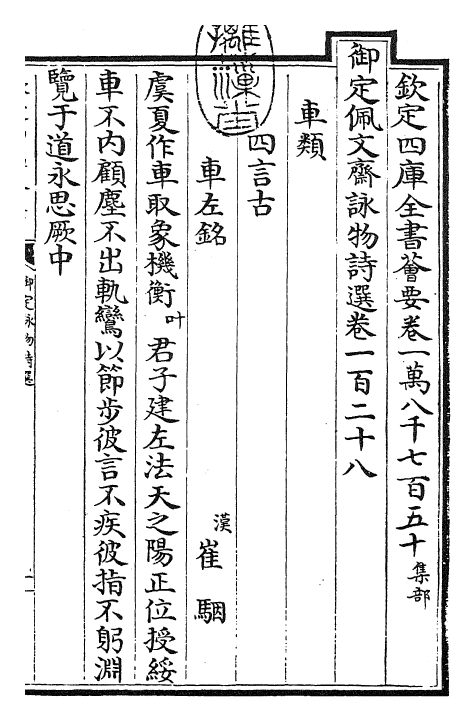 欽定四庫全書薈要卷一萬八千七百五十集部
御定佩文齋詠物詩選卷一百二十八
車類
四言古
車左銘 漢崔駰
虞夏作車取象機衡叶君子建左法天之陽正位授綏
車不内顧塵不出軌鸞以節步彼言不疾彼指不躬淵
覽于道永思厥中
御定詠物詩選